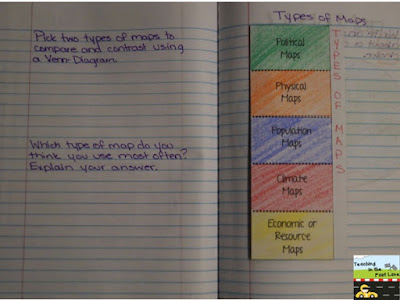 Pick two types of maps to
compare and contrast using
a Venn Diagram.
Which type of map do you
think you use most often?
Explain your answer.
Types of Maps
Political
Maps
Physical
Maps
Population
Maps
Climate
Maps
Economic or
Resource
Maps
TYPES OF MAPS
Teaching
in the
Fast Lane